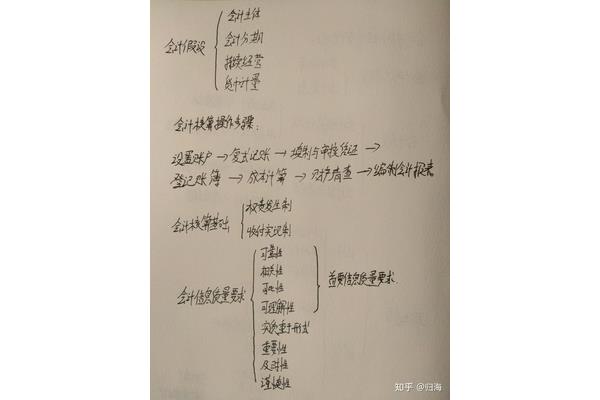 会计假设
会计主体
会计分期
持续经营
货币计量
会计核算操作步骤:
设置账户→复式记账→填制与审核凭证→
登记账簿→成本计算→财产清查→编制会计报表
会计核算基础
权责发生制
收付实现制
会计信息质量要求
可靠性
相关性
可比性
可理解性
实质重于形式
重要性
及时性
谨慎性
首要信息质量要求.
知乎 @归海